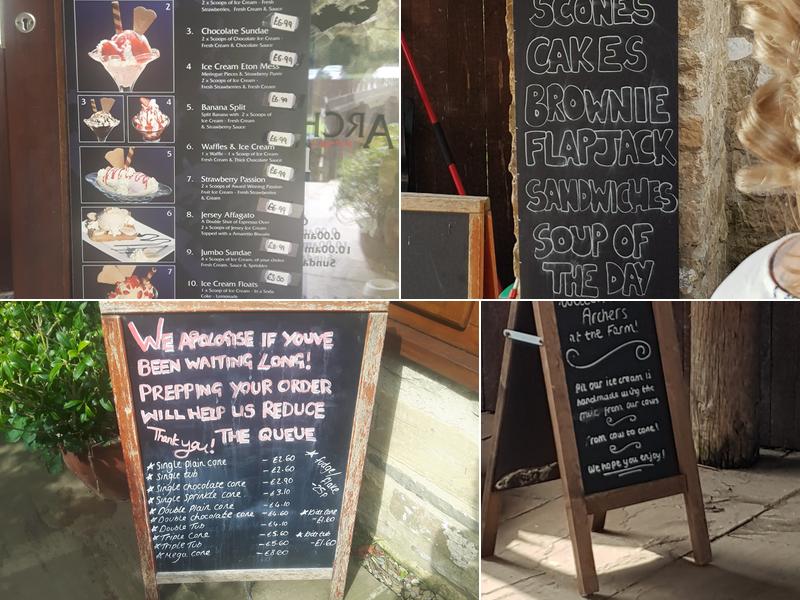 2
Strawberries, Fresh Cream & Sauce
£6.99
3. Chocolate Sundae
2 x Scoops of Chocolate Ice Cream -
Fresh Cream & Chocolate Sauce
£6.99
4 Ice Cream Eton Mess
Meringue Pieces & Strawberry Puree
2 x Scoops of Ice Cream -
Fresh Strawberries & Fresh Cream
£6.99
3
4
5. Banana Split
Split Banana with 2 x Scoops of
Ice Cream - Fresh Cream
& Strawberry Sauce
£6.99
5
6. Waffles & Ice Cream
1 x Waffle - 1 x Scoop of Ice Cream
Fresh Cream & Thick Chocolate Sauce
7. Strawberry Passion
2 x Scoops of Award Winning Passion
Fruit Ice Cream - Fresh Strawberries
& Cream
£6.99
6
8. Jersey Affagato
A Double Shot of Espresso Over
2 x Scoops of Jersey Ice Cream
Topped with x Amaretto Biscuits
9. Jumbo Sundae
4 x Scoops of Ice Cream, of your choice
Fresh Cream, Sauce & Sprinkles
7
10. Ice Cream Floats
1 x Scoop of Ice Cream - In a Soda
Coke - Lemonade
SCONES
CAKES
BROWNIE
FLAPJACK
SANDWICHES
SOUP OF
THE DAY
WE APOLOGISE IF YOU'VE
BEEN WAITING LONG!
PREPPING YOUR ORDER
WILL HELP US REDUCE
Thank you! THE QUEUE
* Single plain cone - £2.60
* Single tub - £2.60
* Single chocolate cone - £2.90
* Single Sprinkle cone - £3.10
* Double plain cone - £4.10
* Double chocolate cone - £4.60
* Double Tub - £4.10
* Triple Cone - £5.60
* Triple Tub - £5.60
* Mega Cone - £8.00
* Fudge/
Flake
25p
* Kids cone
- £1.60
* Kids tub
- £1.60
Archers
at the Farm!
All our ice cream is
handmade using the
milk from our cows
From cow to cone!
We hope you enjoy!